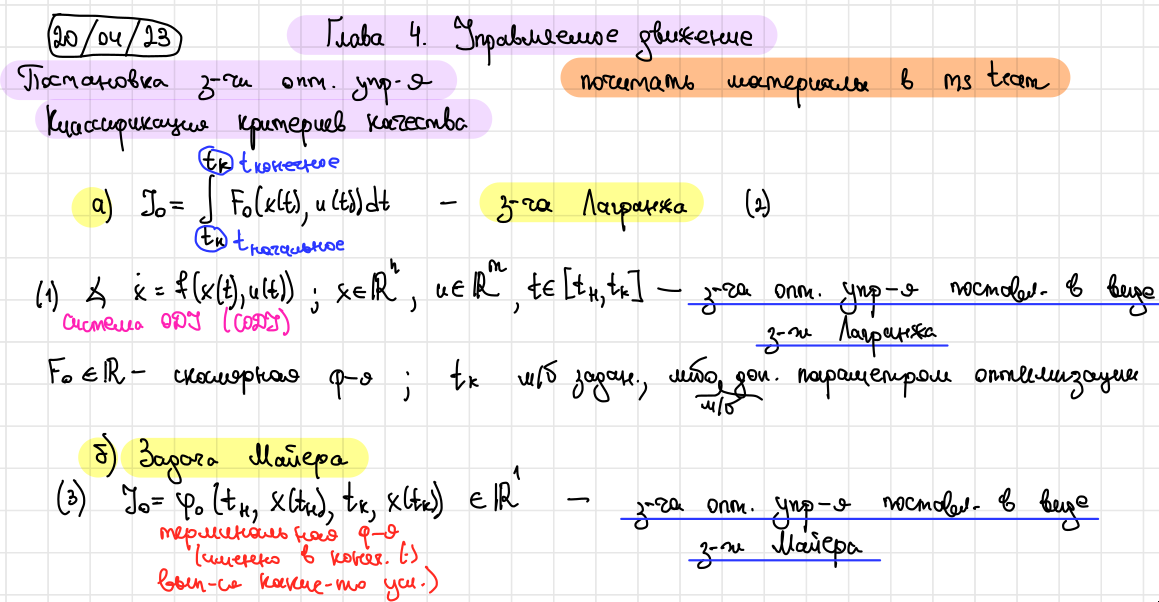 20/04/23 Глава 4. Управляемое движение
Постановка з-чи опт. упр-я почитать материалы в ms team
Классификация критериев качества
tк tконечное
а) J₀ = ∫ F₀(x(t), u(t))dt — з-ча Лагранжа (2)
tн tначальное
(1) ∡ ẋ = f(x(t), u(t)) ; x∈ℝⁿ, u∈ℝᵐ, t∈[tн, tк] — з-ча опт. упр-я поставл. в виде
система ОДУ (СОДУ) з-чи Лагранжа
F₀∈ℝ — скалярная ф-я ; tк м/б задан., либо доп. параметром оптимизации
м/б
б) Задача Майера
(3) J₀ = φ₀(tн, x(tн), tк, x(tк)) ∈ℝ¹ — з-ча опт. упр-я поставл. в виде
терминальная ф-я з-чи Майера
(именно в конеч. t)
вып-ся какие-то усл.)